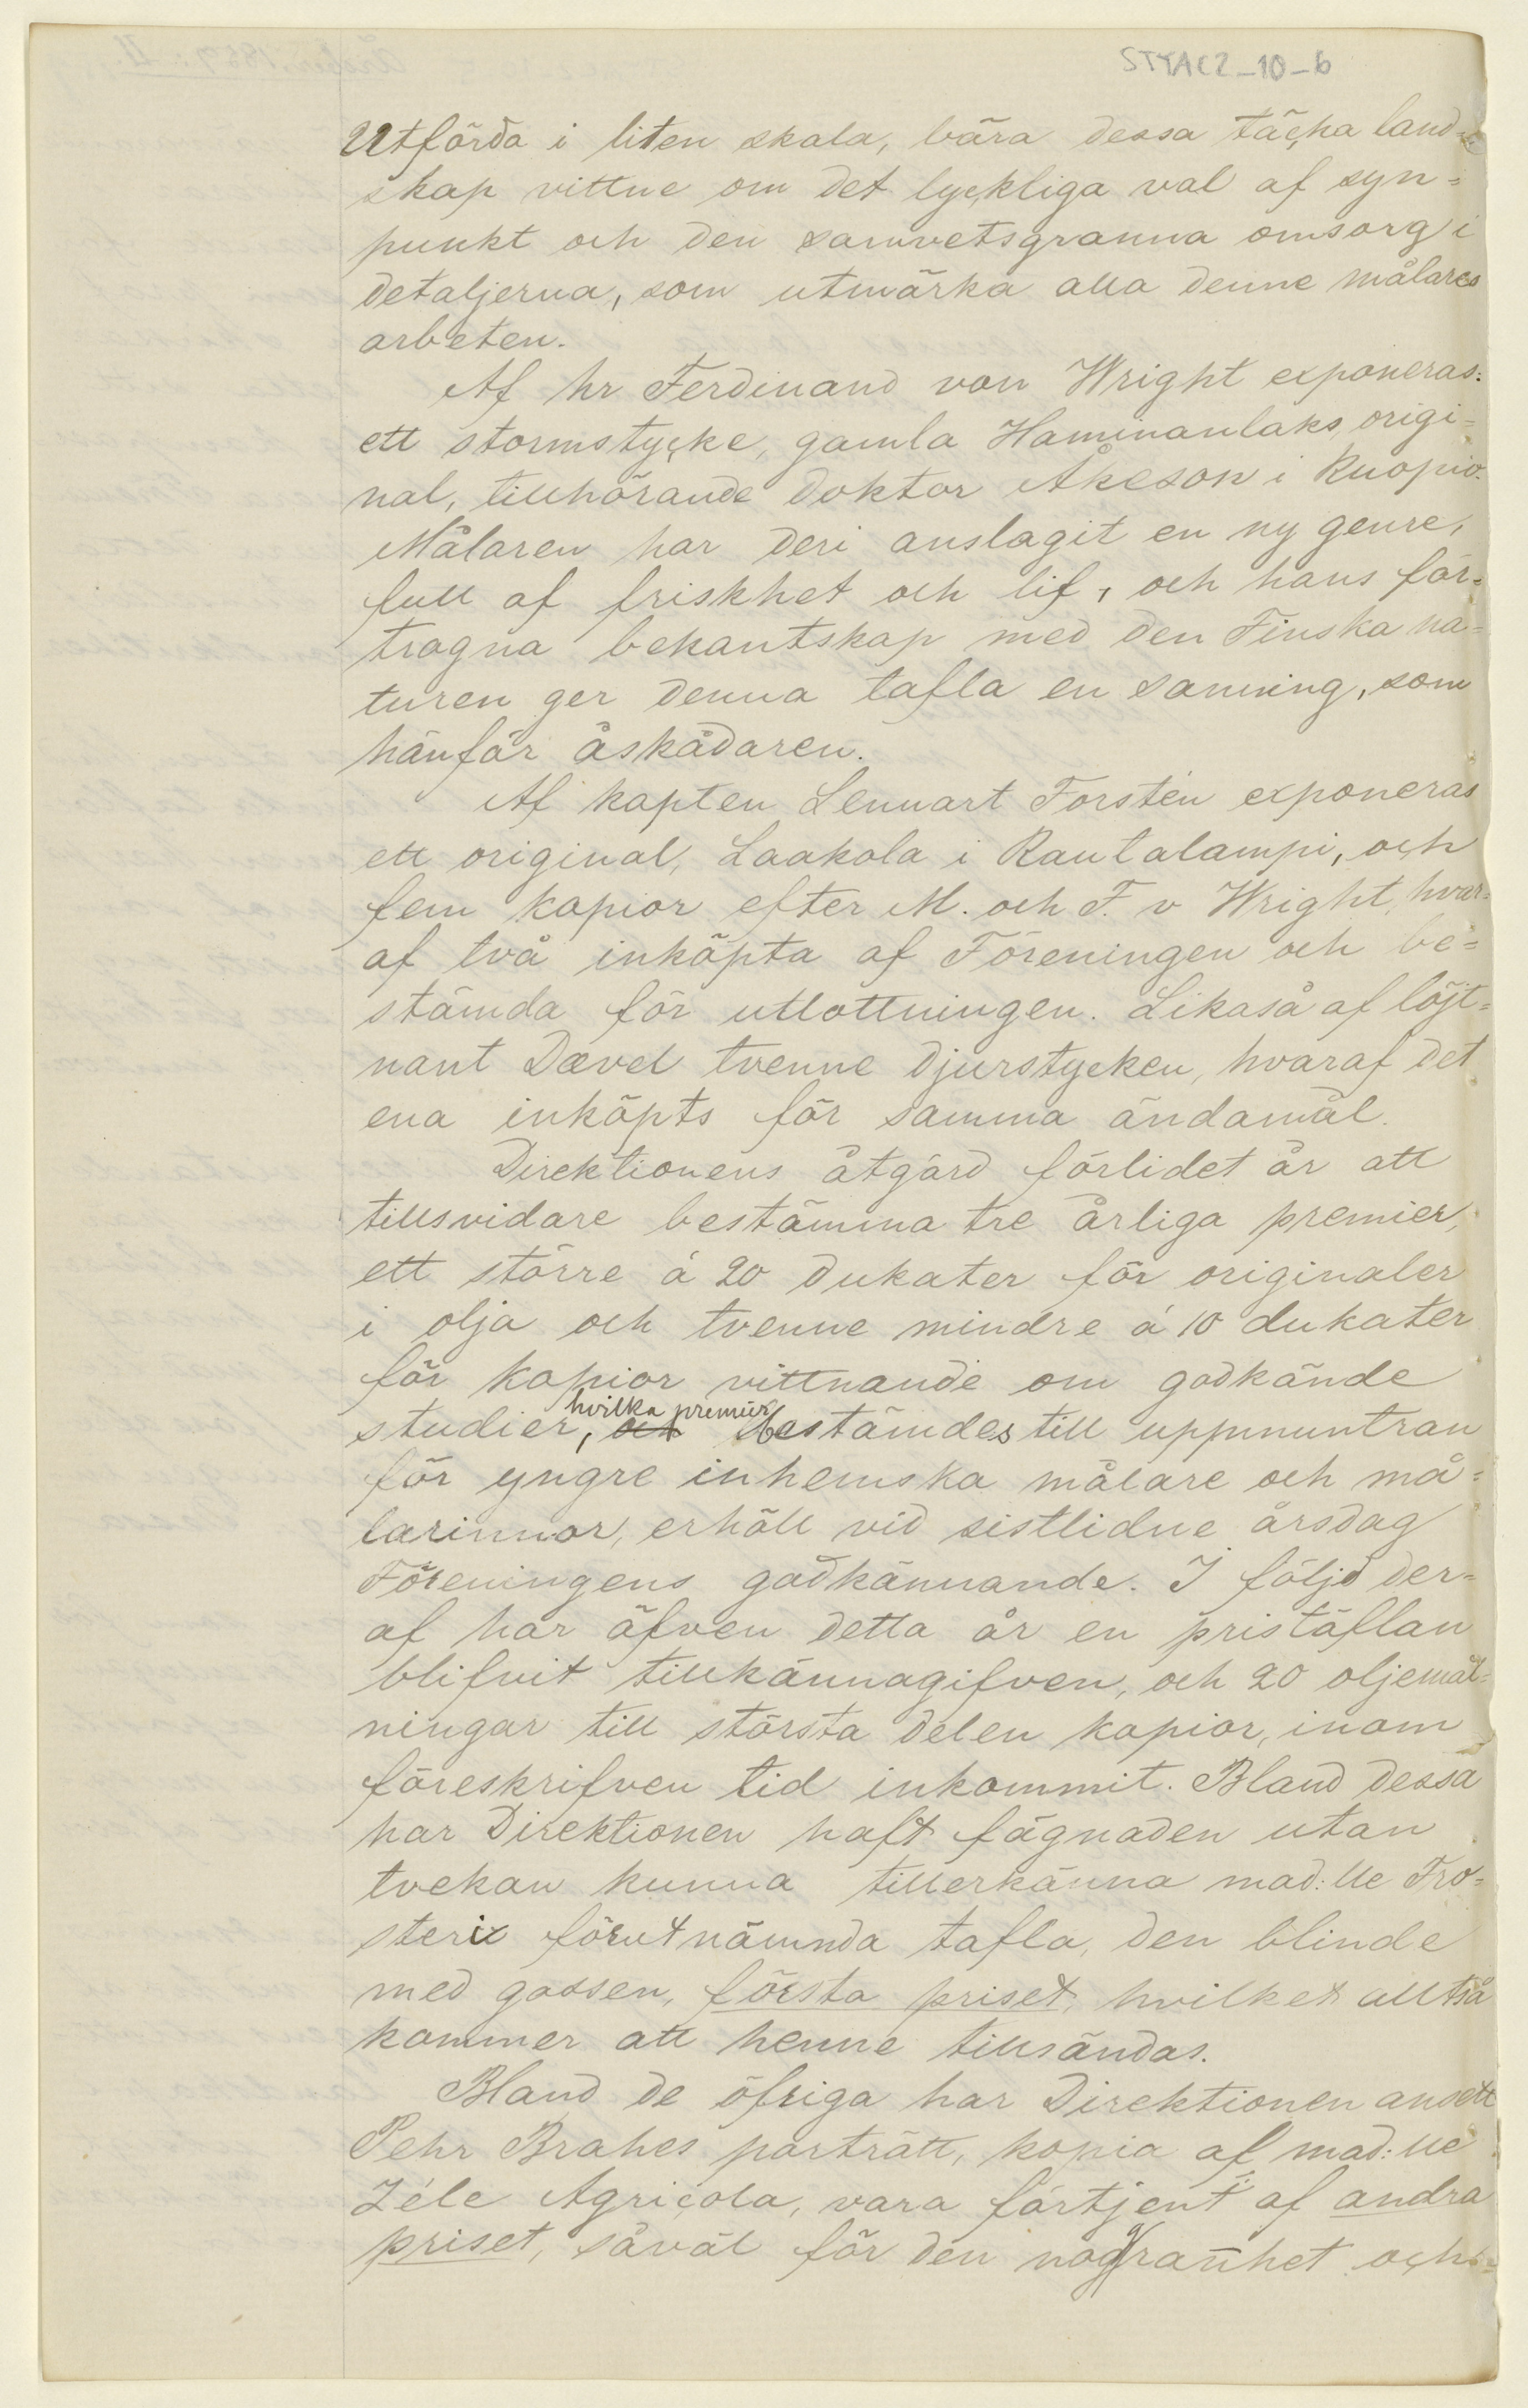 STYAC2_10_b
Utförda i liten skala, bära dessa täcka land-
skap vittne om det lyckliga val af syn=
punkt och den samvetsgranna omsorg i
detaljerna, som utmärka alla denne målares
arbeten.
Af hr Ferdinand von Wright exponeras:
ett stormstycke, gamla Haminanlaks, origi=
nal, tillhörande doktor Åkeson i Kuopio.
Målaren har deri anslagit en ny genre,
full af friskhet och lif, och hans för=
trogna bekantskap med den Finska na=
turen ger denna tafla en sanning, som
hänför åskådaren.
Af kapten Lennart Forstén exponeras
ett original, Laakola i Rautalampi, och
fem kopior efter M. och F. v Wright, hvar=
af två inköpta af Föreningen och be=
stämda för utlottningen. Likaså af löjt=
nant Dævel tvenne djurstycken, hvaraf det
ena inköpts för samma ändamål.
Direktionens åtgärd förlidet år att
tillsvidare bestämma tre årliga premier,
ett större á 20 dukater för originaler
i olja och tvenne mindre á 10 dukater
för kopior vittnande om godkände
hvilka premier
studier, och bestämdes till uppmuntran
för yngre inhemska målare och må=
larinnor, erhöll vid sistlidne årsdag
Föreningens godkännande. I följd der=
af har äfven detta år en pristäflan
blifvit tillkännagifven, och 20 oljemål=
ningar till största delen kopior, inom
föreskrifven tid inkommit. Bland dessa
har Direktionen haft fägnaden utan
tvekan kunna tillerkänna mad:lle Fro=
sterix förutnämnda tafla, den blinde
med gossen, första priset, hvilket alltså
kommer att henne tillsändas.
Bland de öfriga har Direktionen ansett
Pehr Brahes porträtt, kopia af mad:lle
Zéle Agricola, vara förtjent af andra
priset, såväl för den noggranhet och